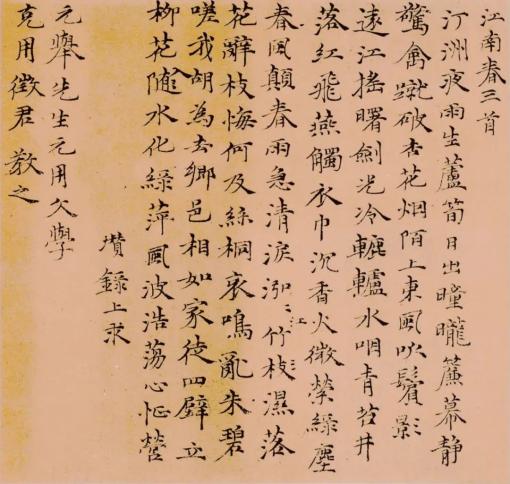 江南春三首
汀洲夜雨生蘆筍日出曈曨簾幕靜
驚禽蹴破杏花烟陌上東風吹鬢影
遠江搖曙劍光冷轆轤水咽青苔井
落紅飛燕觸衣巾沉香火微縈綠塵
春風顛春雨急清淚泓〻江竹枝濕落
花辭枝悔何及絲桐哀鳴亂朱碧
嗟我胡為去鄉邑相如家徒四壁立
柳花隨水化綠萍風波浩蕩心怔營
瓚錄上求
元舉先生元用文學
克用徵君教之